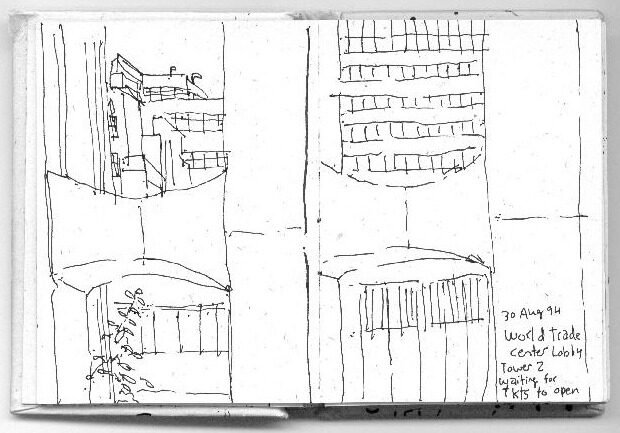 30 Aug 94
World Trade
center Lobby
Tower 2
waiting for
TKTS to open